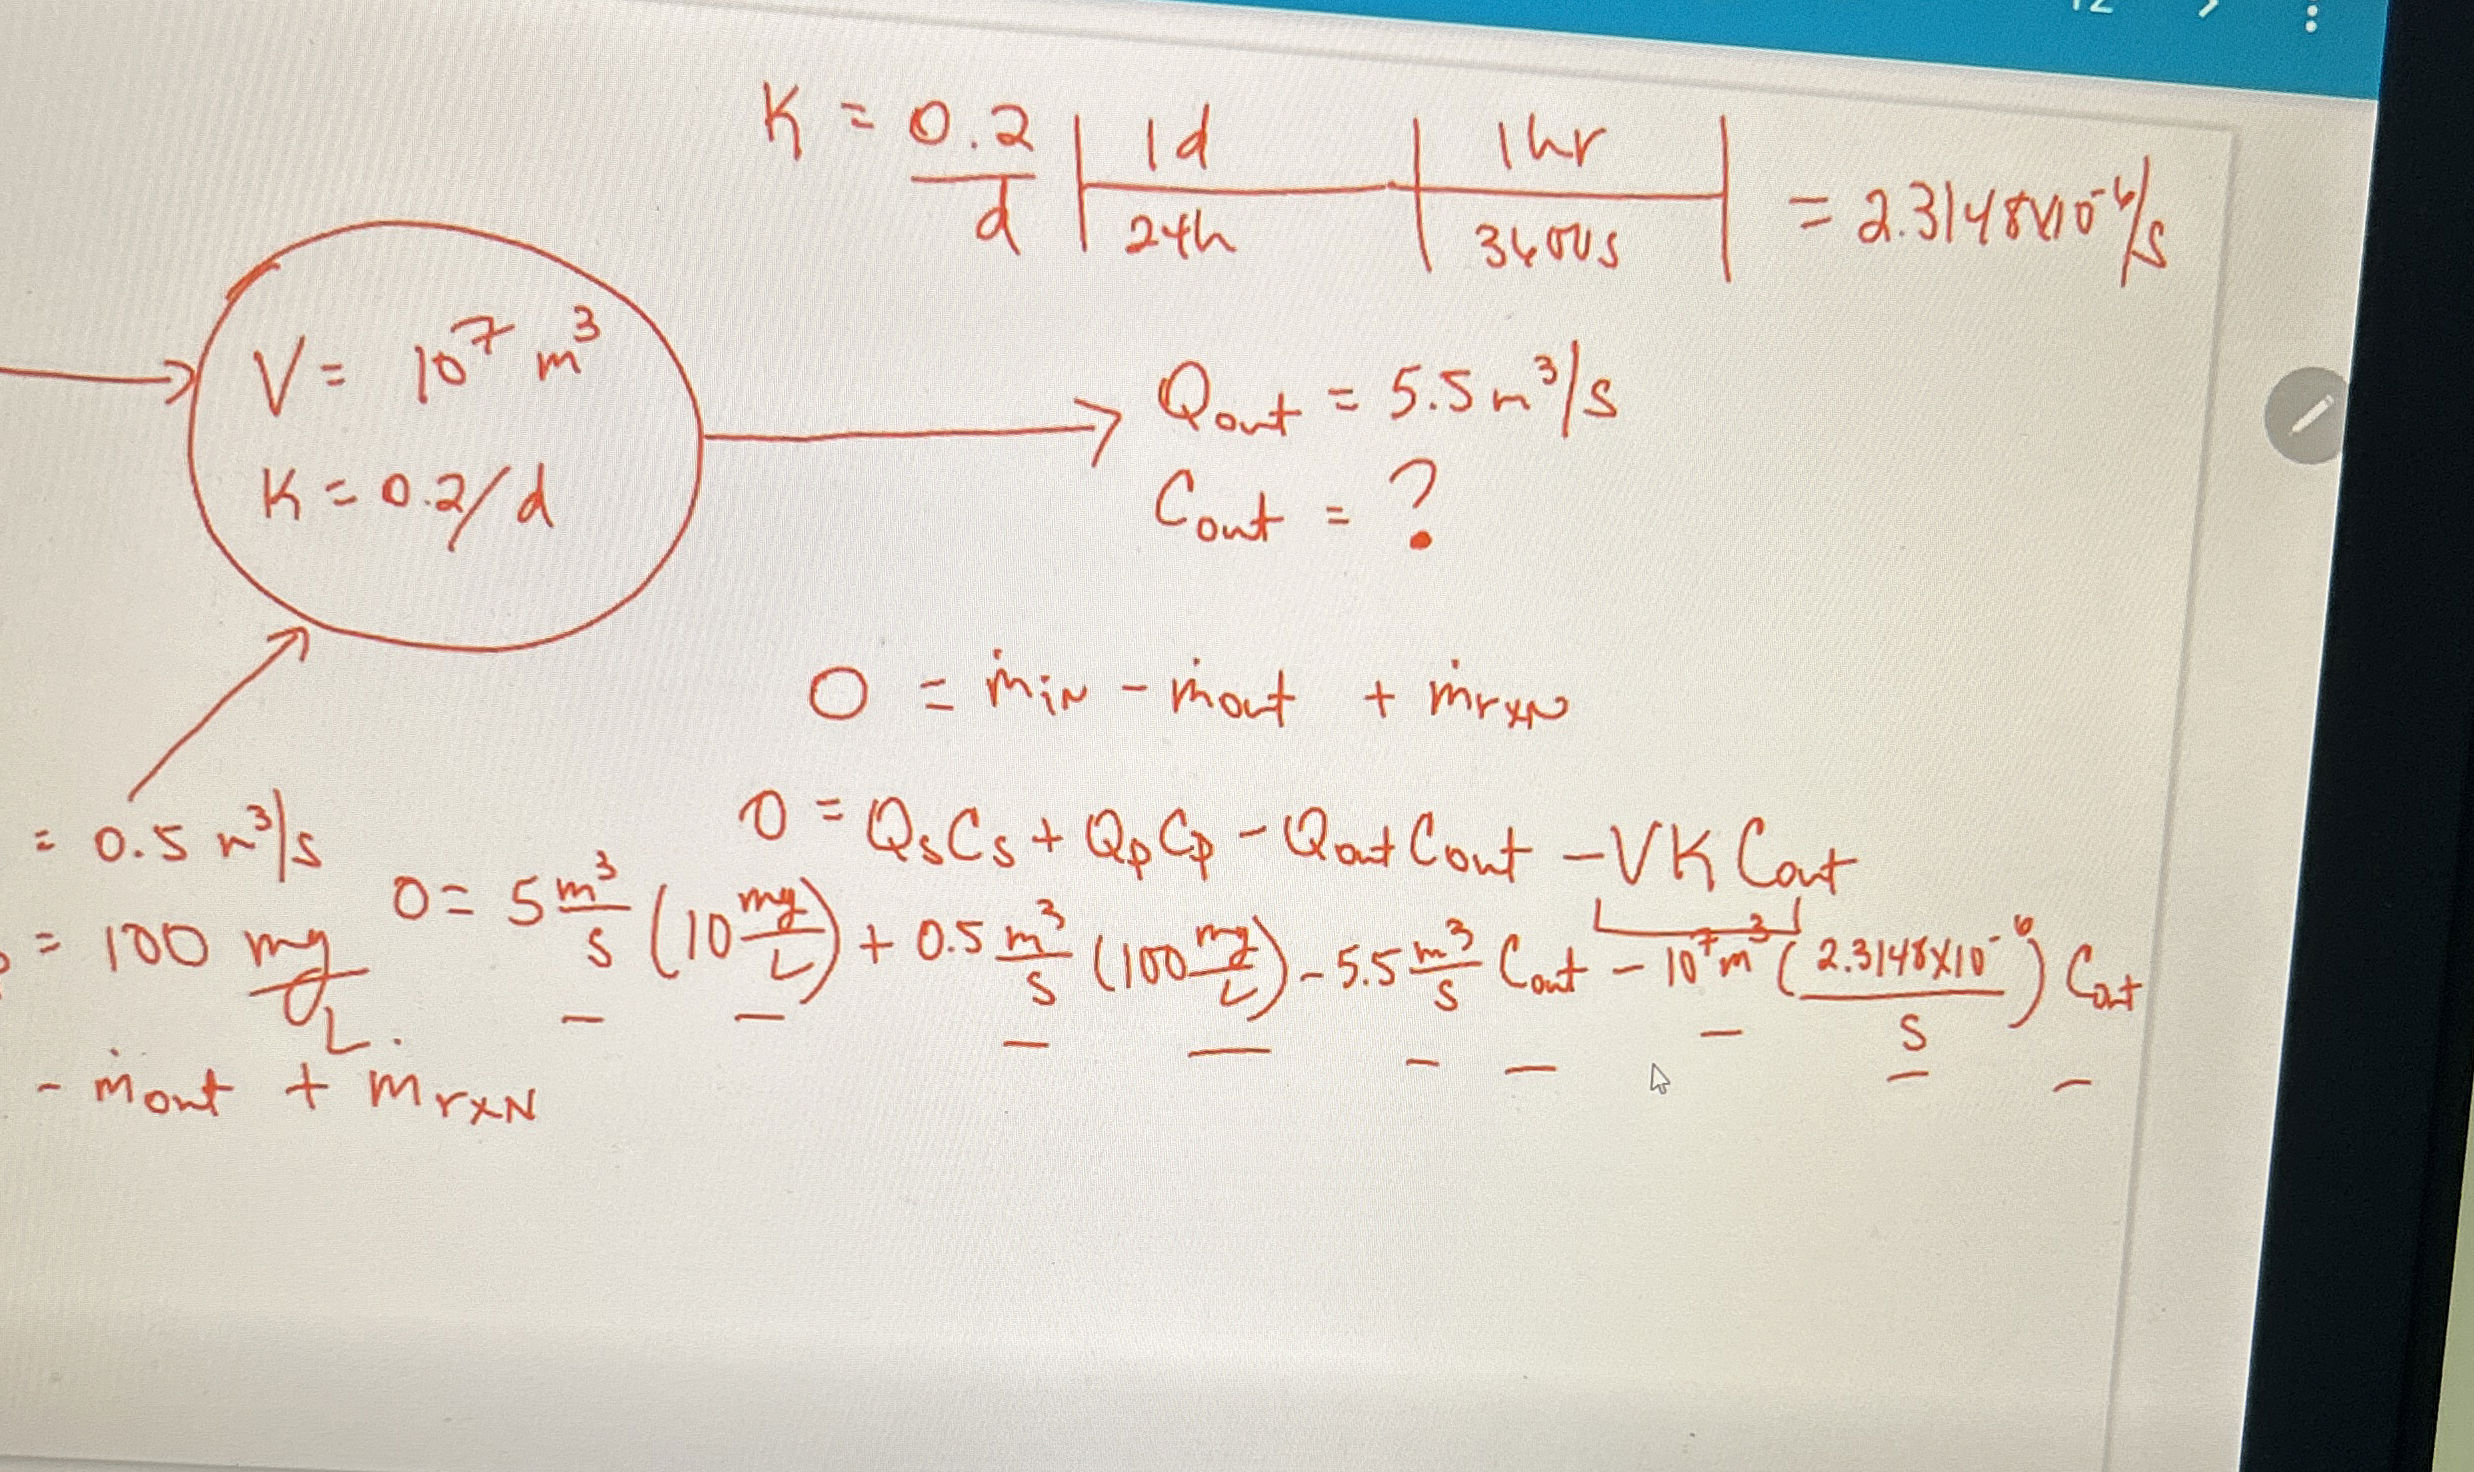 K = 0.2/d | 1d/24h | 1hr/3600s | = 2.3148x10^-6/s
V = 10^7 m^3
K = 0.2/d
Qout = 5.5 m^3/s
Cout = ?
0 = ṁin - ṁout + ṁrxn
= 0.5 m^3/s
0 = QsCs + QpCp - Qout Cout - VK Cout
= 100 mg/L.
0 = 5 m^3/s (10 mg/L) + 0.5 m^3/s (100 mg/L) - 5.5 m^3/s Cout - 10^7 m^3 (2.3148x10^-6/s) Cout
- ṁout + mrxn